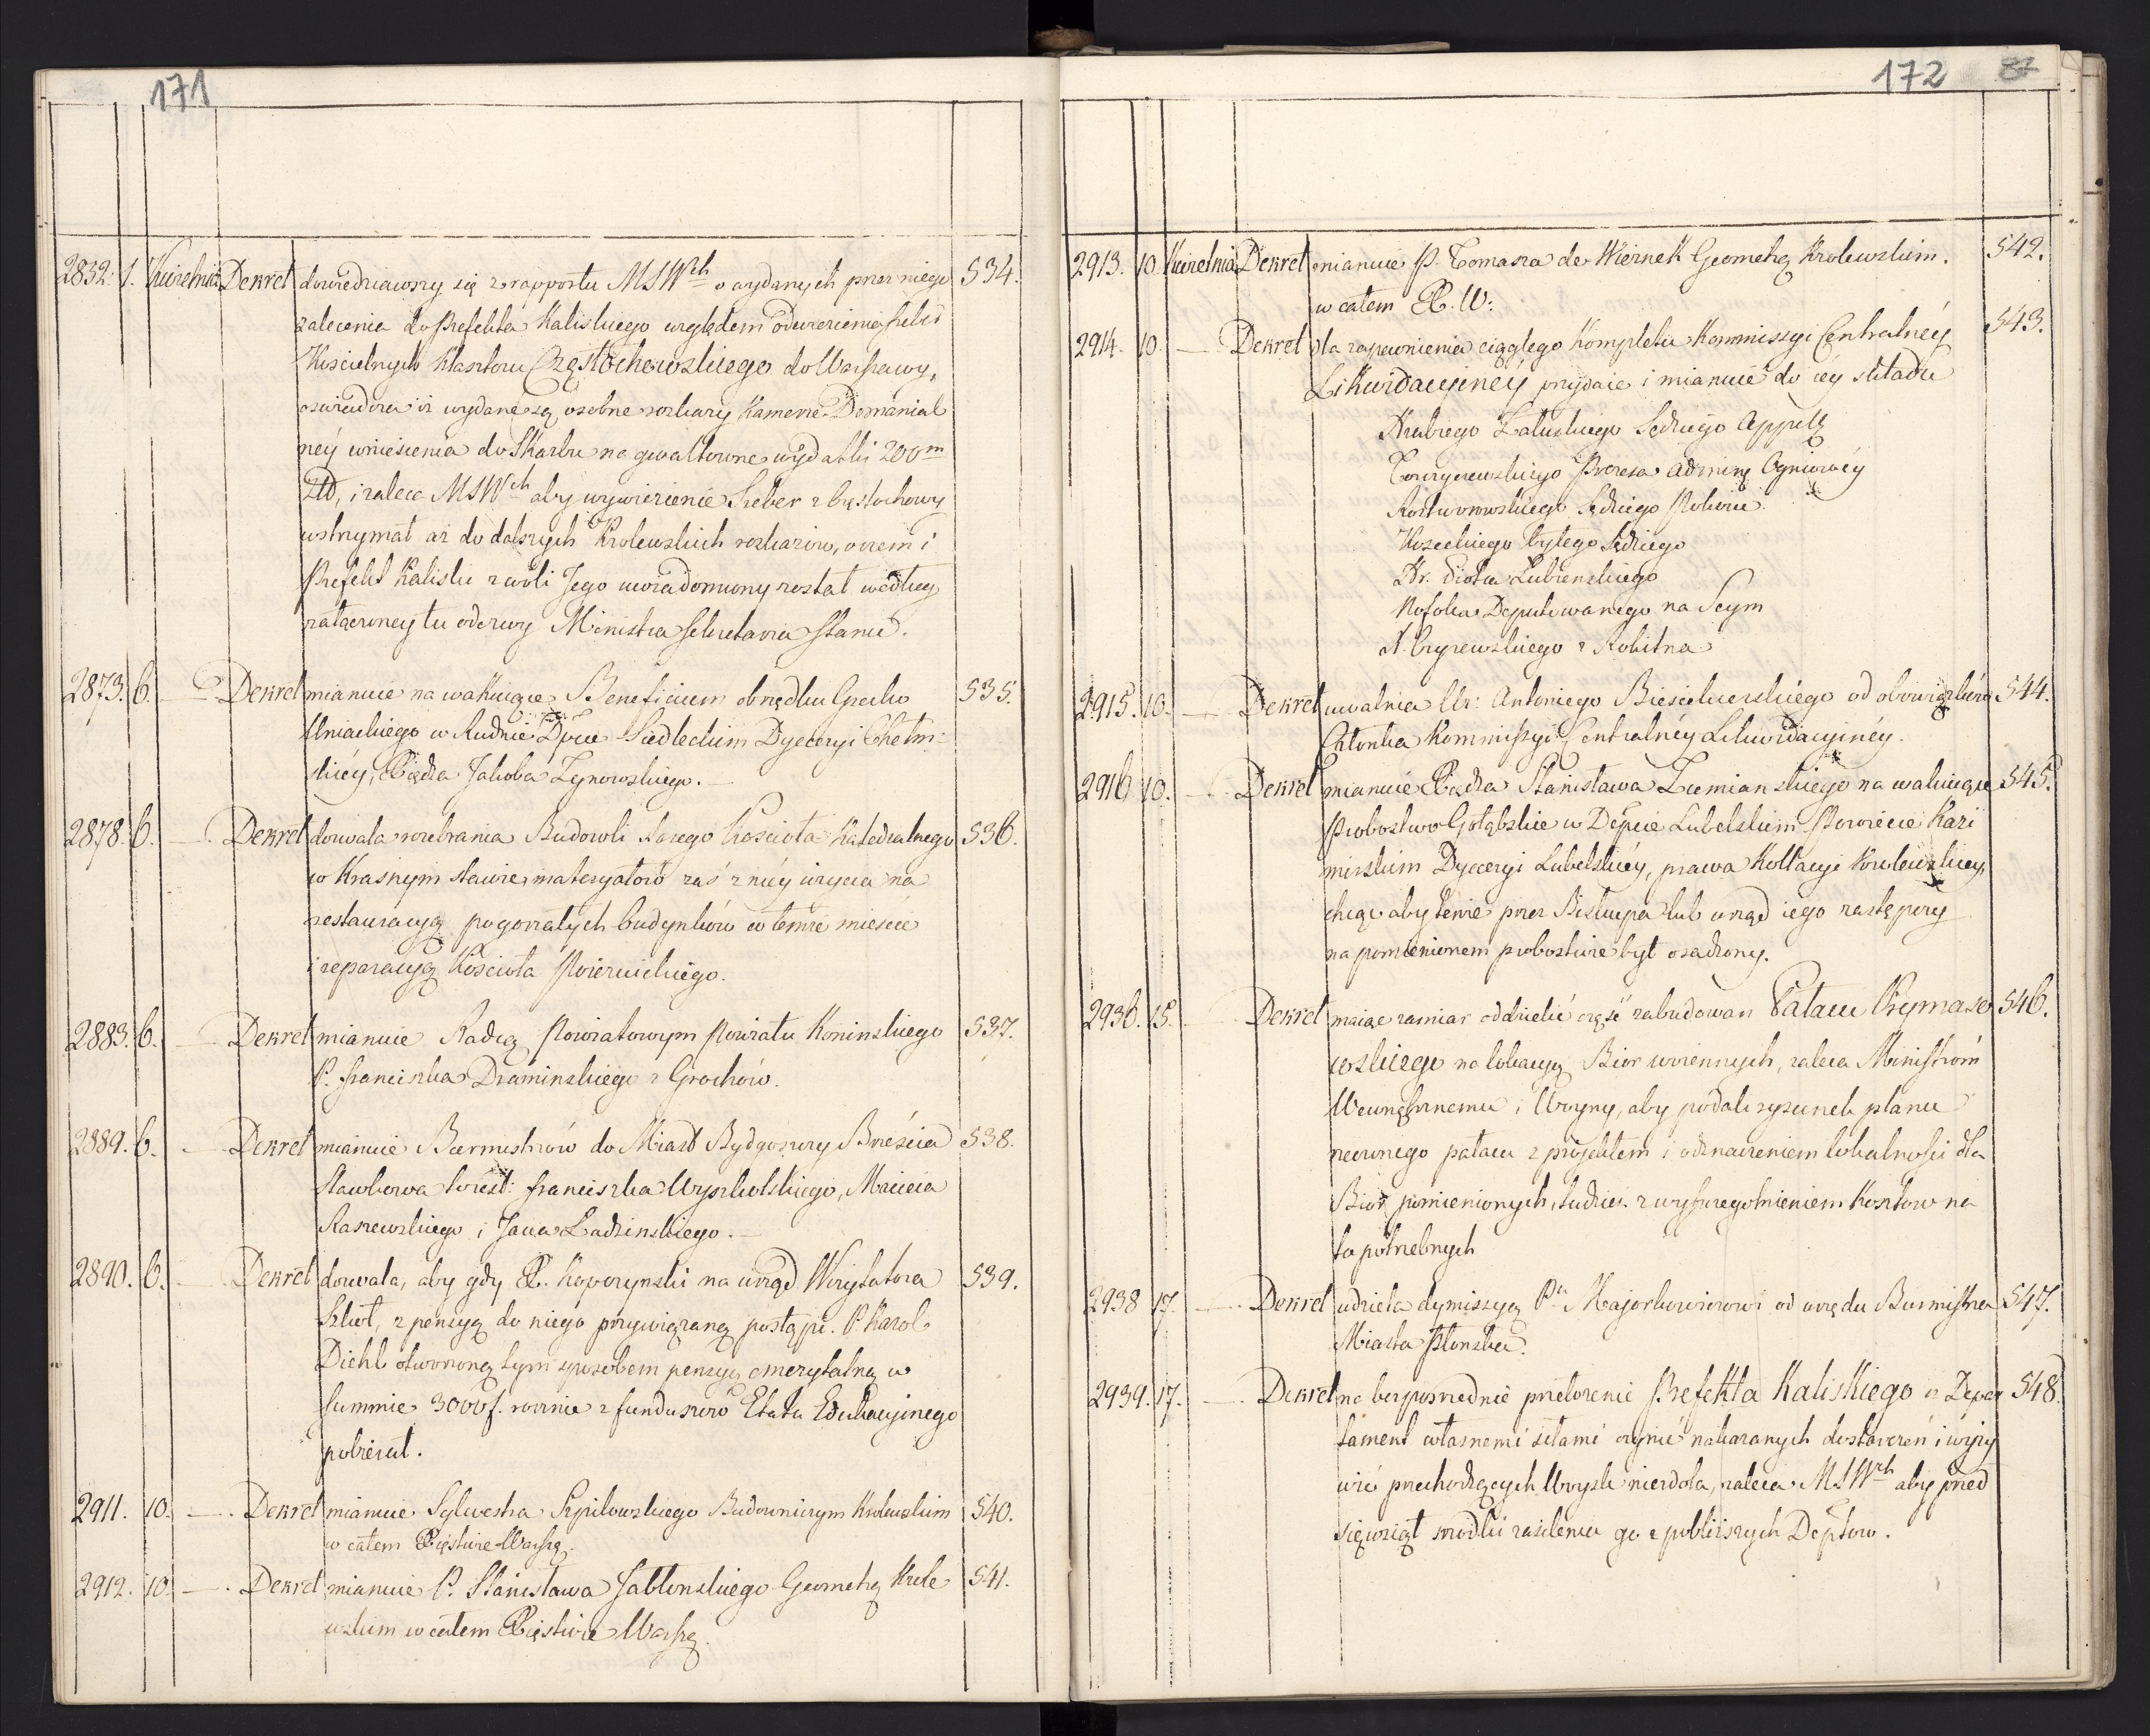 171
2852. 1. Kwietnia Dekret dowiedziawszy się z rapportu MSWch o wydanych przez niego 534.
zalecenia do Prefekta Kaliskiego względem odwiezienia sreber
Kościelnych Klasztoru Częstochowskiego do Warszawy,
oswiadcza iż wydane są osobne rozkazy Kamerze Domanial
néy wniesienia do Skarbu na gwałtowne wydatki 200m
Złł, i zaleca MSWch aby wywiezienie Sreber z Częstochowy
wstrzymał aż do dalszych Krolewskich rozkazow, o czem i
Prefekt Kaliski z woli Jego uwiadomiony został według
załączoney tu odezwy Ministra Sekretarza Stanu.
2873. 6. — Dekret mianuie na wakuiące Beneficium obrządku Grecko 535.
Uniackiego w Rudnie Dpcie Siedleckim Dyecezyi Chełm=
skiéy, Xiędza Jakoba Zynowskiego. —
2878. 6. — Dekret dozwala rozebrania Budowli starego Kościoła Katedralnego 536.
w Krasnym stawie, materyałow zaś z niéy użycia na
restauracyą pogorzałych budynków w temże mieście
i reparacyą Kościoła Poieruickiego.
2883. 6. — Dekret mianuie Radzcą Powiatowym Powiatu Koninskiego 537.
P. Franciszka Draminskiego z Grochów.
2889. 6. — Dekret mianuie Burmistrzów do Miast Bydgoszczy Brześcia 538.
Sławkowa to iest: Franciszka Wyszkolskiego, Macieia
Raszewskiego i Jana Ładzinskiego. —
2890. 6. — Dekret dozwala, aby gdy X. Kopczynski na urząd Wizytatora 539.
Szkoł, z pensyą do niego przywiązaną postąpi. P. Karol
Diehl otworzoną tym sposobem pensyę emerytalną w
summie 3000f. rocznie z funduszow Etatu Edukacyinego
pobierał.
2911. 10. — Dekret mianuie Sylwestra Szpilowskiego Budowniczym Krolewskim 540.
w całem Xięstwie Warszą.
2912. 10. — Dekret mianuie P. Stanisława Jabłonskiego Geometrą Krole 541.
wskim w całem Xięstwie Warszą.
172 87
2913. 10. Kwietnia Dekret mianuie P. Tomasza de Wiernek Geometrą Krolewskim. 542.
w całem X. W:
2914. 10 — Dekret dla zapewnienia ciągłego Kompletu Kommissyi Centralnéy 543.
Likwidacyinéy przydaie i mianuie do iéy składu
Hrabiego Załuskiego Sędziego Appell
Prezesa Adminy Ogniowéy
Rostworowskiego Sędziego Pokoiu
Kozeckiego byłego Sędziego
Hr. Piotra Lubienskiego
Deputowanego na Seym
z Rokitna
2915. 10. — Dekret uwalnia Ur: Antoniego Biesiekierskiego od obowiązków 544.
Członka Kommissyi Centralnéy Likwidacyinéy.
2916 10. — Dekret mianuie Xiędza Stanisława Zumianskiego na wakuiące 545.
Probostwo Gołąbskie w Dépcie Lubelskim Powiecie Kazi
mirskim Dyecezyi Lubelskiéy, prawa Kollacyi Krolewskiey,
chcąc aby tenże przez Biskupa lub urząd iego zastępczy
na pomienionem probostwie był osadzony.
2936. 15. — Dekret maiąc zamiar oddzielić część zabudowan Pałacu Prymaso 546.
wskiego na lokacyą Biór woiennych, zaleca Ministróm
Wewnętrznemu i Woyny, aby podali rysunek planu
rzeczonego pałacu z projektem i odznaczeniem lokalności dla
Biór pomienionych, tudzież z wyszczegolnieniem Kosztow na
to potrzebnych
2938 17. — Dekret udziela dymissyą Pu Majorkiewiczowi od urzędu Burmistrza 547.
Miasta Płonska.
2939. 17. — Dekret na bezposrednie przełożenie Prefekta Kaliskiego iż Depar 548.
tament własnemi siłami czynić nakazanych dostarczeń i wyży
wić przechodzących Woysk niezdoła, zaleca MSWch aby przed
sięwziął srodki zasilenia go z pobliższych Deptow.